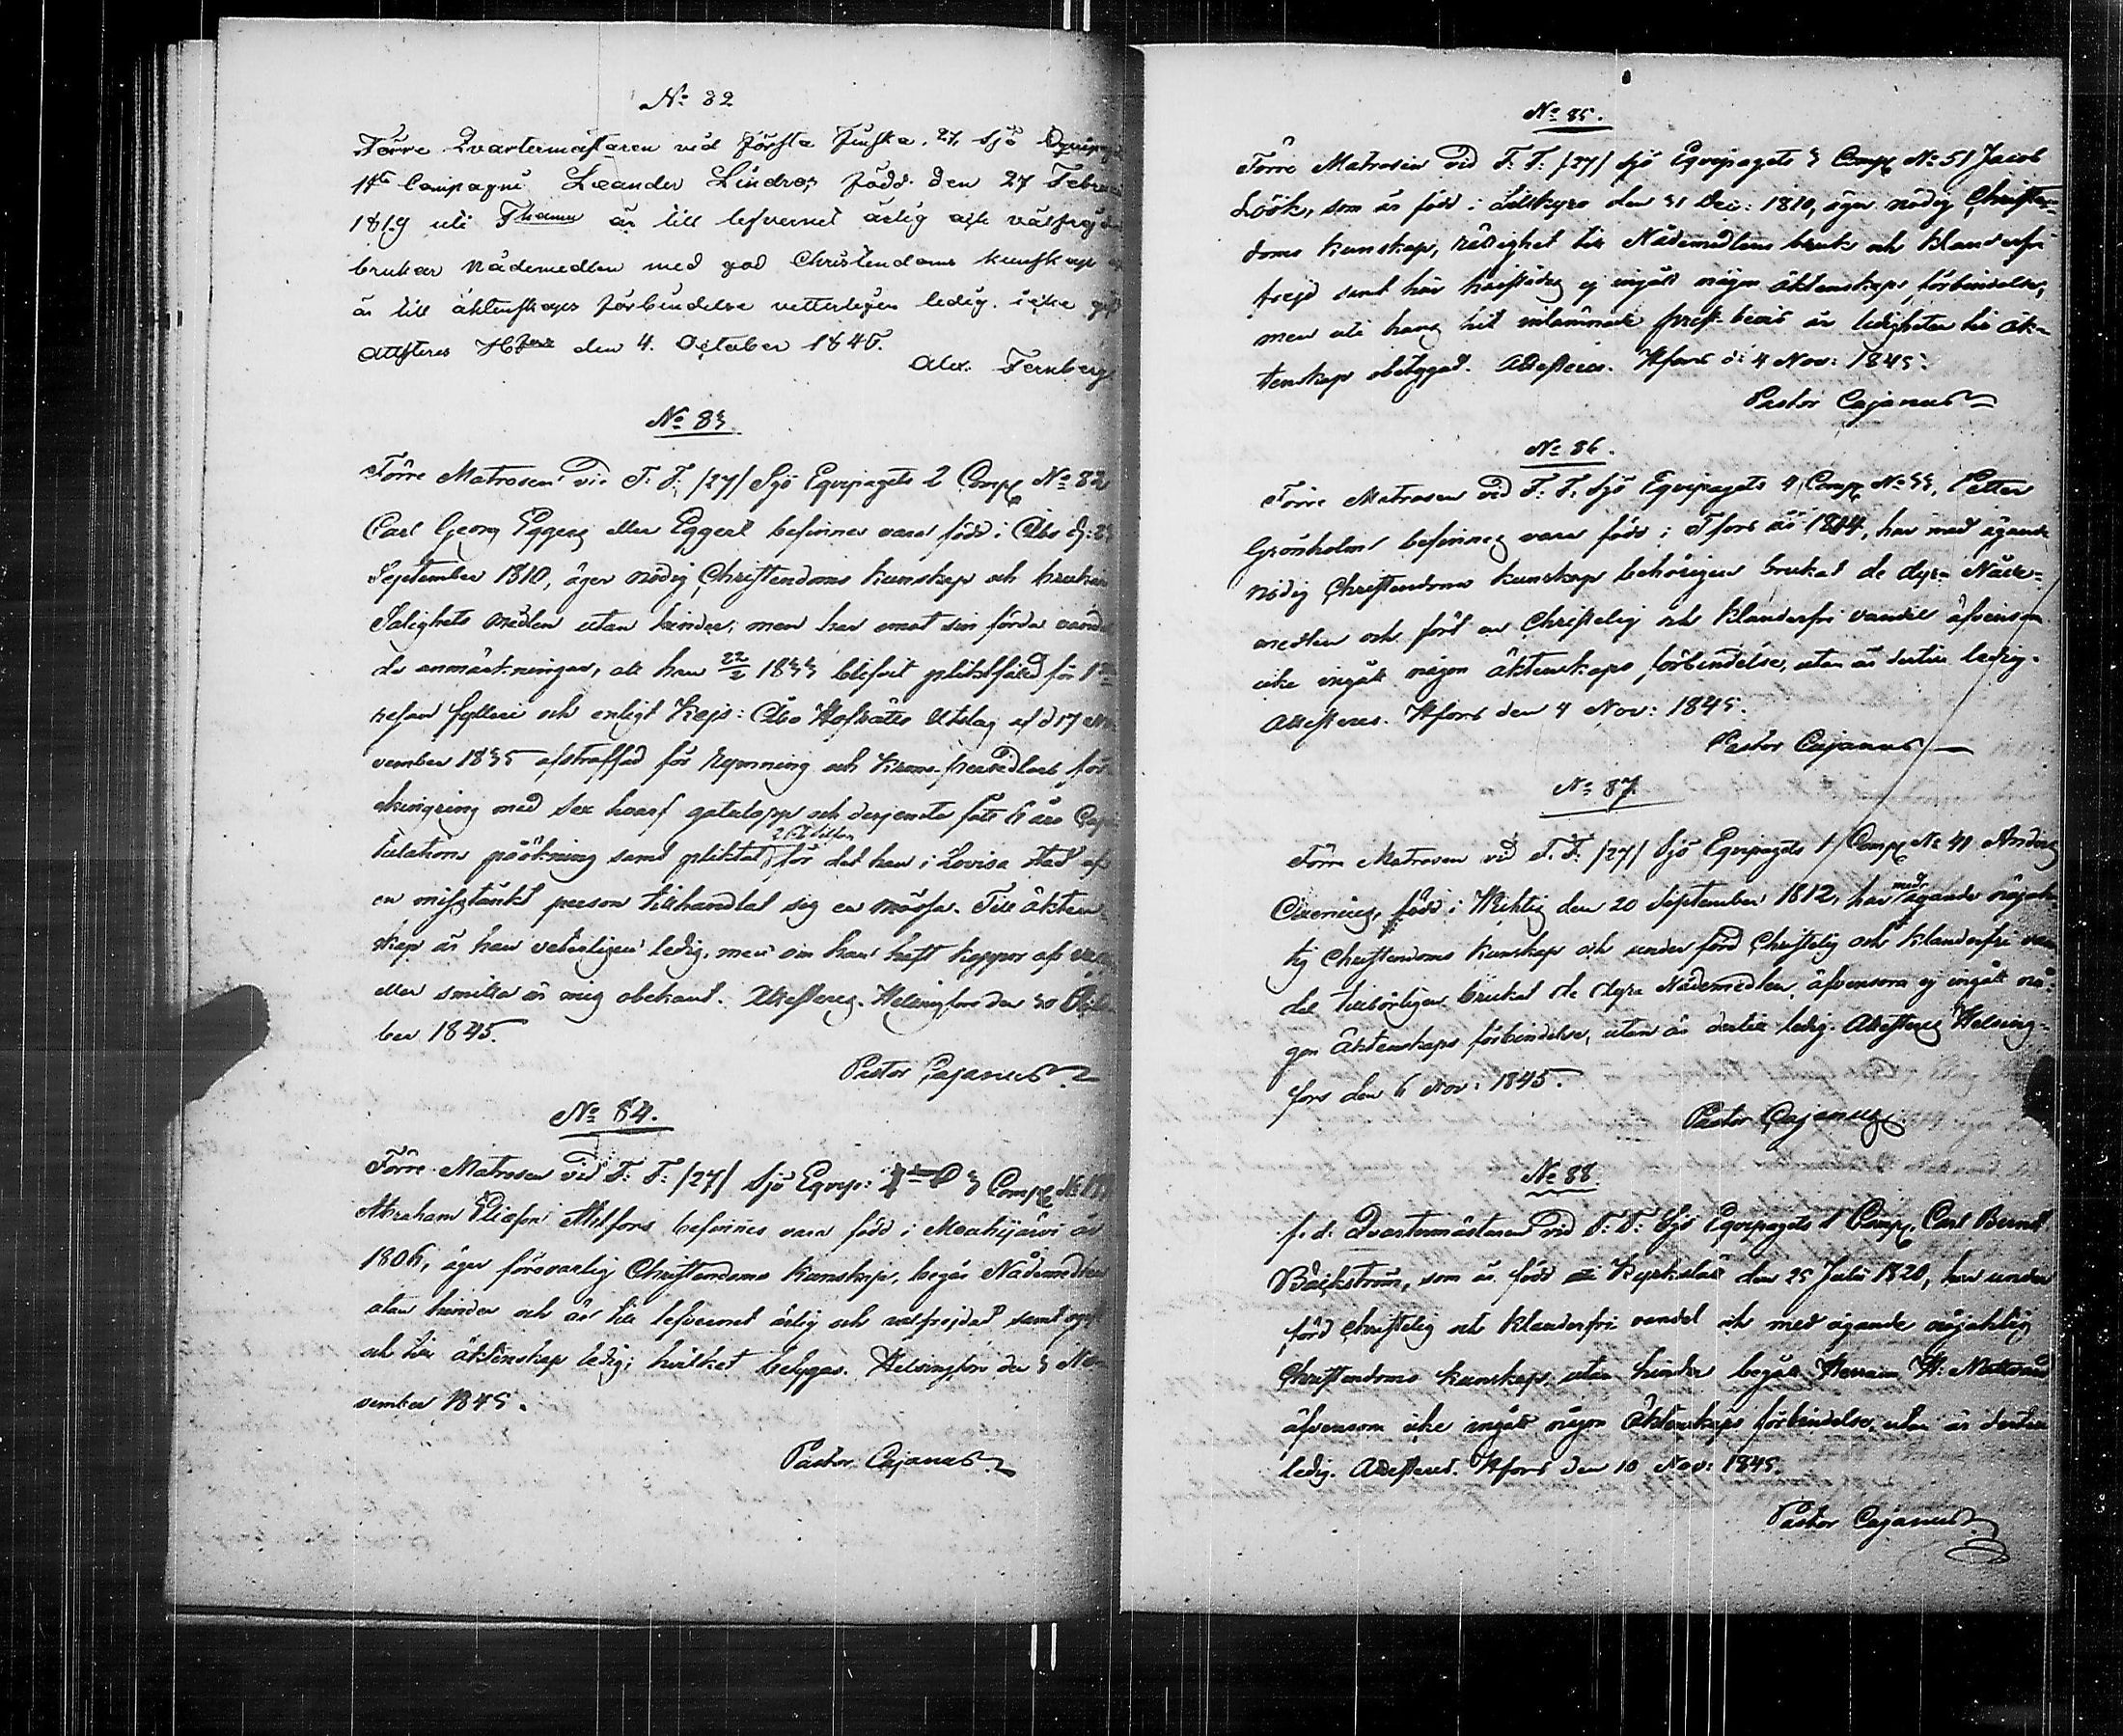 No 82
Förre Qvartermästaren vid Första Finska. 27. Sjö Equipag
1sta Compagni Leander Lindros född den 27 Februa
1819 uti är till lefvernet ärlig och välfrejda
brukar nådemedlen med god Christendoms kunskap
är till äktenskaps förbindelse vetterligen ledig. icke
attesteras Hfors den 4. October 1845.
Alex. Fernberg
No 83.
Förre Matrosen vid F. F. /27/ Sjö Eqvipagets 2 Comp No 82
Carl Georg Eggerz eller Eggert befinnes vara född i Åbo d:
September 1810, äger nödig Christendoms kunskap och brukar
Salighets medlen utan hinder; men har emot sin förda vandel
de anmärkningar, att han 22/2 1833 blifvit pliktfäld för 1sta
resan fylleri och enligt Kejs: Åbo Hofrätts Utslag af d 17 No
vember 1835 afstraffad för rymning och Krono persedlars för
skingring med sex hvarf gatulopp och derjemte fått 6 års Cap
tulations påökning samt pliktat för det han i Lovisa stad af
en misstänkt person tillhandlat sig en mössa. Till äkten
skap är han veterligen ledig, men om han haft koppor
eller smitta är mig obekant. Attesteras. Helsingfors den 30 Octo
ber 1845.
Pastor Cajanus
No 84.
Förre Matrosen vid F. F. /27/ Sjö Eqvip: 3 Comp No
Abraham Eliasson Altfors befinnes vara född i Mouhijärvi år
1806, äger försvarlig Christendoms kunskap, begår Nådemedlen
utan hinder och är till lefvernet ärlig och välfrejdad samt
och till äktenskap ledig; hvilket betygas. Helsingfors den 3 No
vember 1845.
Pastor Cajanus
No 85.
Förre Matrosen vid F. F. /27/ Sjö Eqvipagets 3 Comp No 51 Jacob
Löök, som är född i Lillkyro den 31 Dec: 1810, äger nödig Christen-
doms kunskap, rättighet till Nådemedlens bruk och klanderfri
frejd samt har härstädes ej ingått någon äktenskaps förbindelse,
men uti hans hit inlämnade prest-bevis är ledigheten till äk-
tenskap obetygad. Attesteras. Hfors d: 4 Nov: 1845.
Pastor Cajanus
No 86.
Förre Matrosen vid F. F. Sjö Eqvipagets 4 Comp No 33, Petter
Grönholm befinnes vara född i Hfors år 1814, har med ägande
nödig Christendoms kunskap behörigen brukat de dyra Nåde-
medlen och fört en Christelig och klanderfri vandel äfvensom
icke ingått någon äktenskaps förbindelse, utan är dertill ledig.
Attesteras. Hfors den 4 Nov: 1845.
Pastor Cajanus
No 87
Förre Matrosen vid F. F. /27/ Sjö Eqvipagets 1 Comp No 41 Anders
född i Wichtis den 20 September 1812, har med ägande nöjak
tig Christendoms kunskap och under förd Christelig och klanderfri van
del tillbörligen brukat de dyra Nådemedlen, äfvensom ej ingått nå
gon äktenskaps förbindelse, utan är dertill ledig. Attesteras Helsing-
fors den 6 Nov: 1845.
Pastor Cajanus
No 88.
f. d. Qvartermästaren vid F. F. Sjö Eqvipagets 1 Comp. Carl Bernd
Bäckström, som är född i Kyrkslätt den 25 Julii 1820, har under
förd Christelig och klanderfri vandel och med ägande nöjaktig
Christendoms kunskap utan hinder begått Herrans H: Nattvard
äfvensom icke ingått någon äktenskaps förbindelse, utan är dertill
ledig. Attesteras. Hfors den 10 Nov: 1845.
Pastor Cajanus